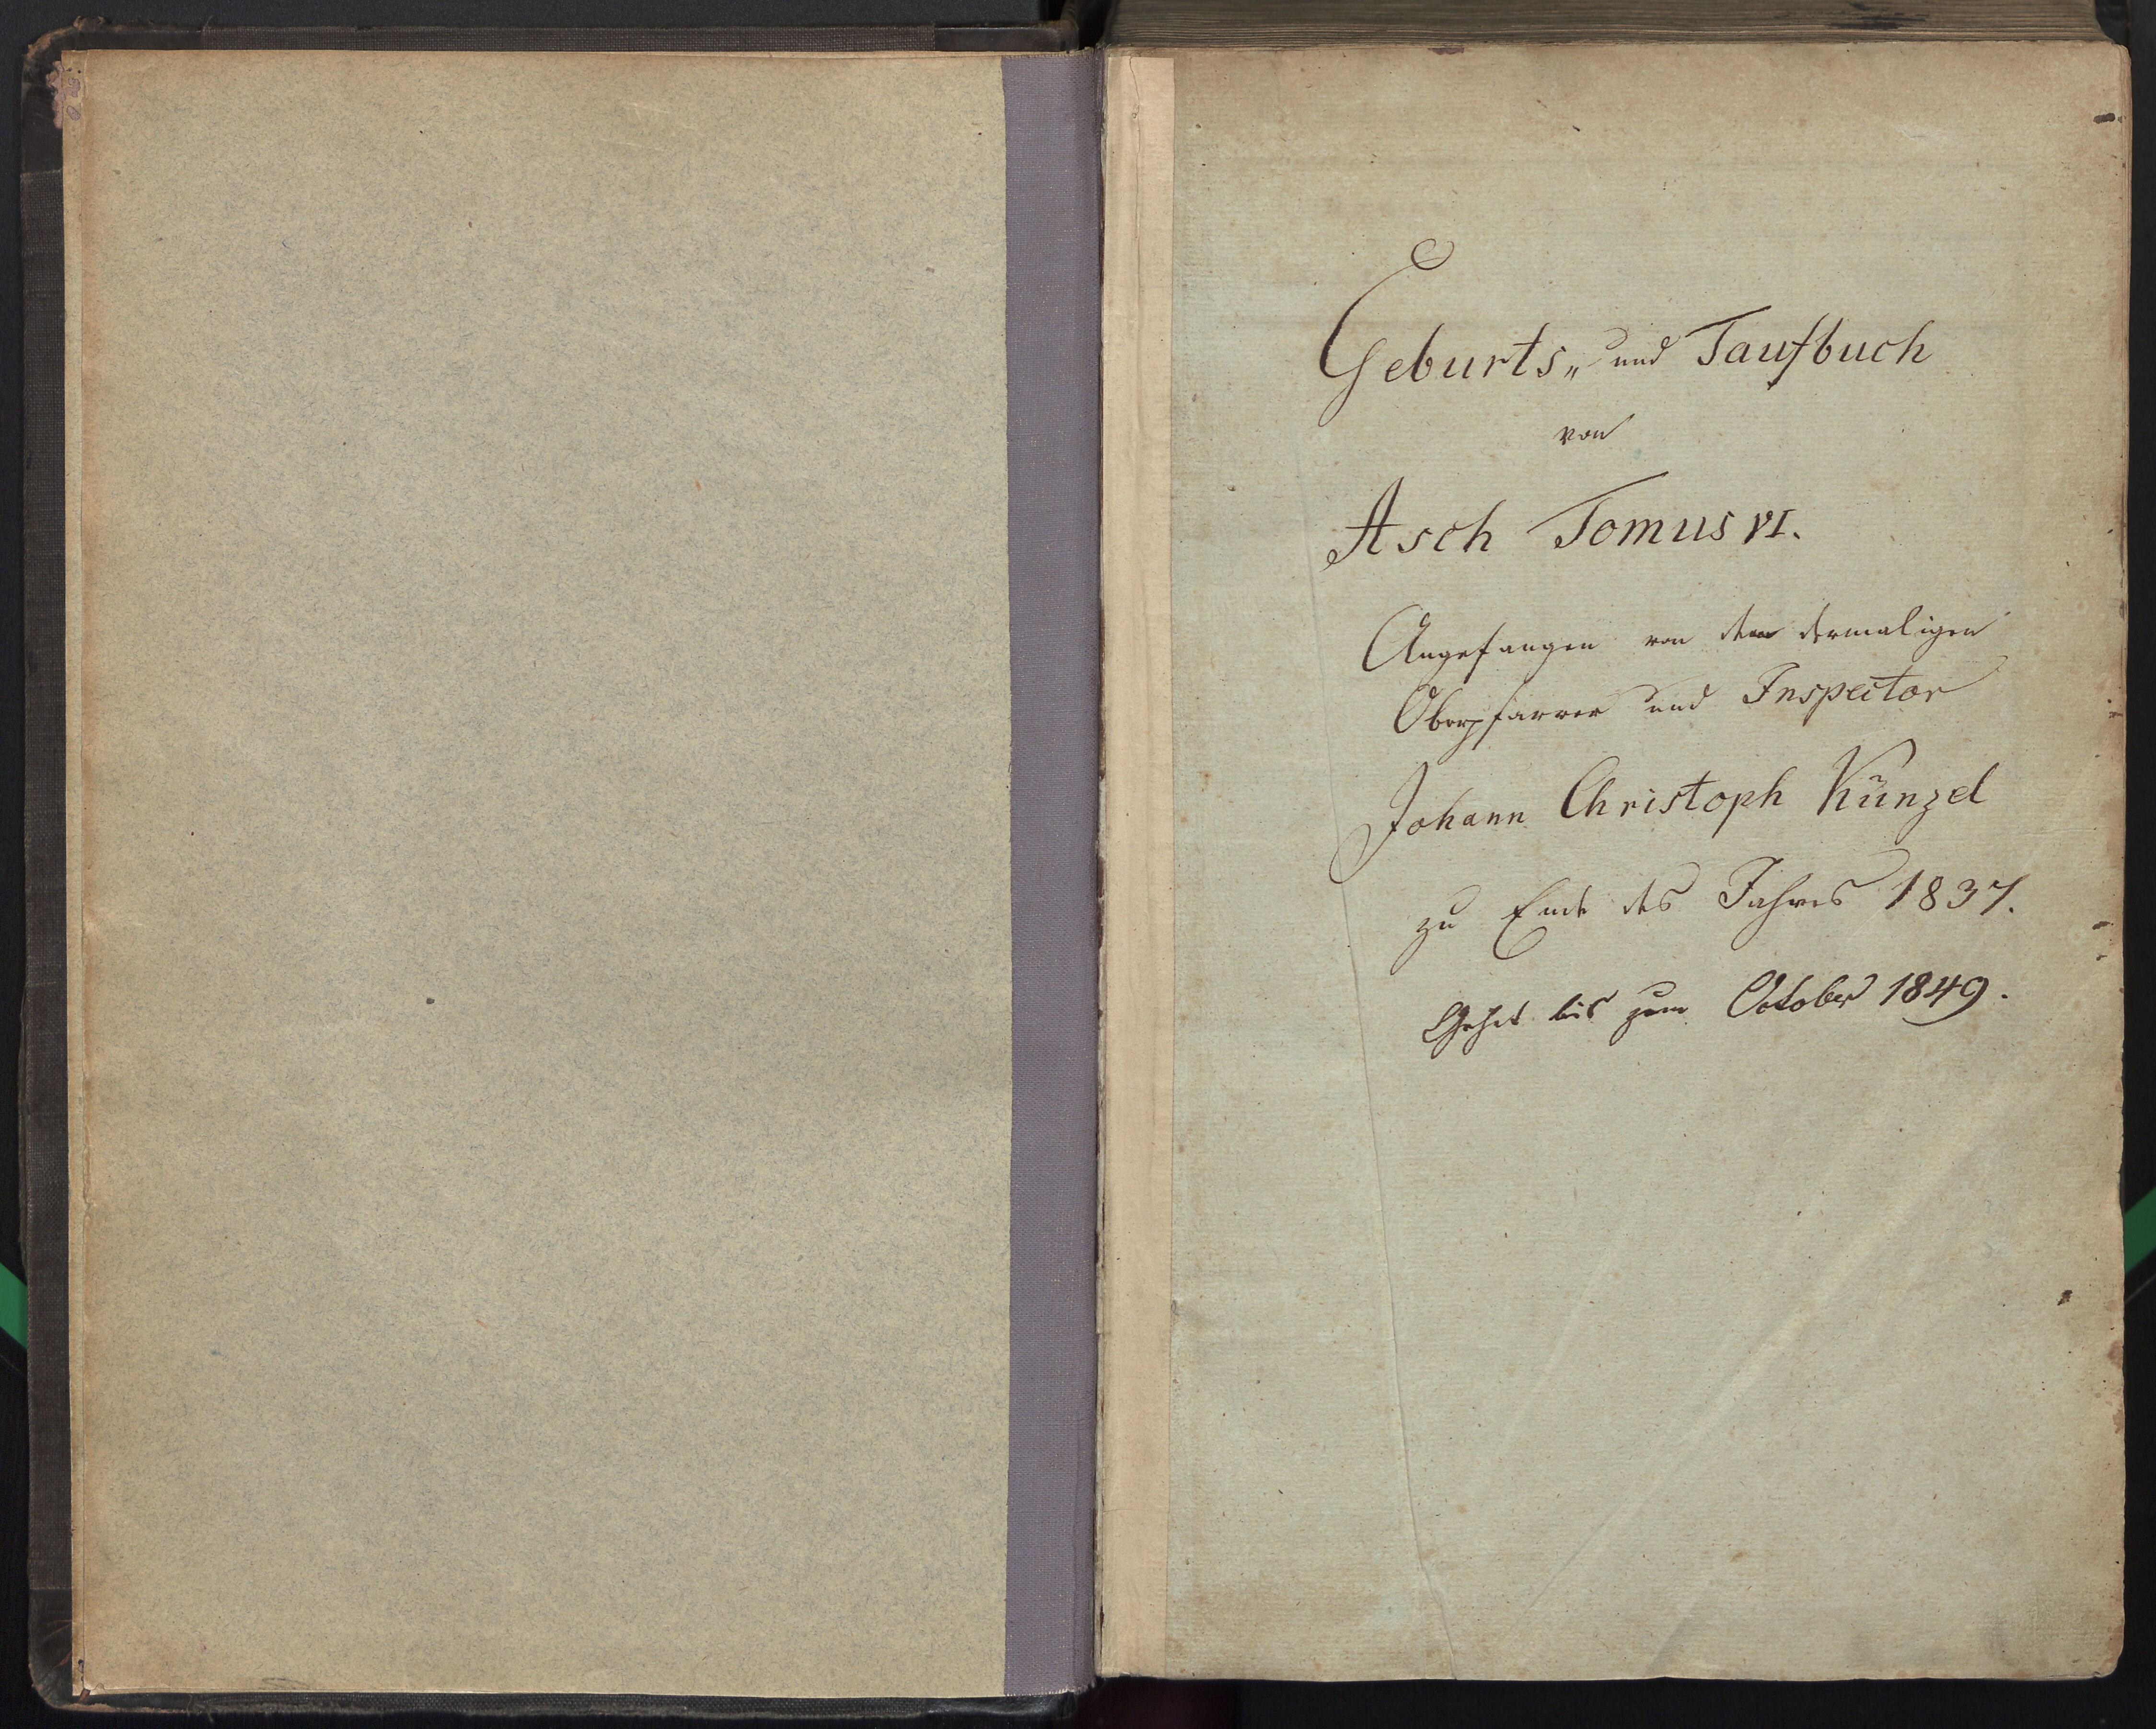 Geburts„ und Taufbuch
von
Asch Tomus VI.
Angefangen von dem dermaligen
Oberpfarrer und Inspector
Johann Christoph Künzel
zu Ende des Jahres 1837.
Gehet bis zum October 1849.